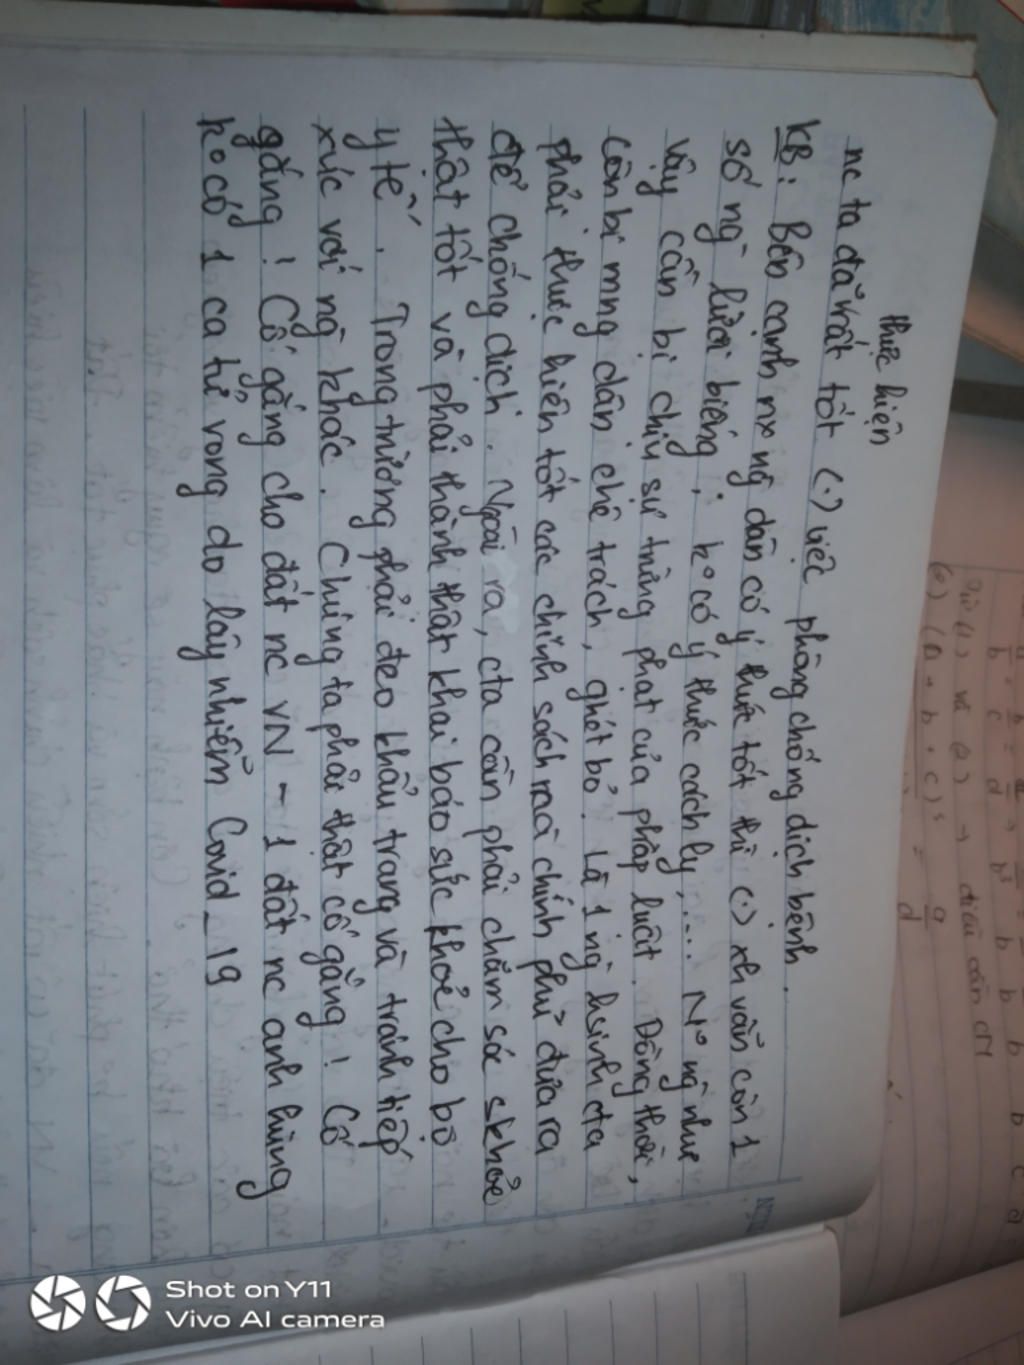 thực hiện
nc ta đã rất tốt (.) việc phòng chống dịch bệnh.
KB: Bên cạnh nx ng dân có ý thức tốt thì (.) xh vẫn còn 1
số ng lười biếng, ko có ý thức cách ly,... No ng như
vậy cần bị chịu sự trừng phạt của pháp luật. Đồng thời,
còn bị mng dân chê trách, ghét bỏ. Là 1 ng hsinh cta
phải thực hiện tốt các chính sách mà chính phủ đưa ra
để chống dịch. Ngoài ra, cta cần phải chăm sóc skhoẻ
thật tốt và phải thành thật khai báo sức khoẻ cho bộ
y tế. Trong trường phải đeo khẩu trang và tránh tiếp
xúc với ng khác. Chúng ta phải thật cố gắng! Cố
gắng! Cố gắng cho đất nc VN - 1 đất nc anh hùng
ko có 1 ca tử vong do lây nhiễm Covid_19
(a + b + c)³ = a/d
từ (1) và (2) → điều cần CM
Shot on Y11
Vivo AI camera